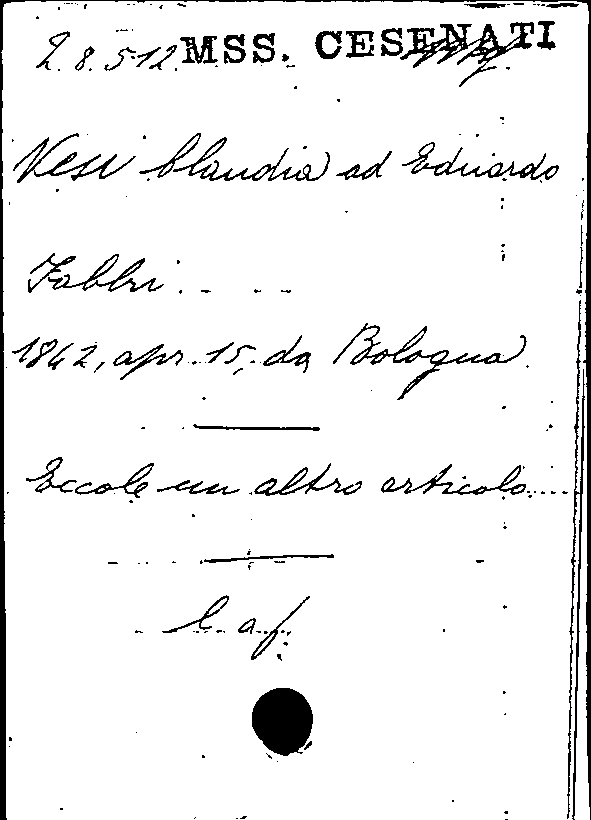 2.8.512 MSS. CESENATI
Vesi Claudia ad Eduardo
Fabbri
1842, apr. 15, da Bologna
Eccole un altro articolo
C. af.